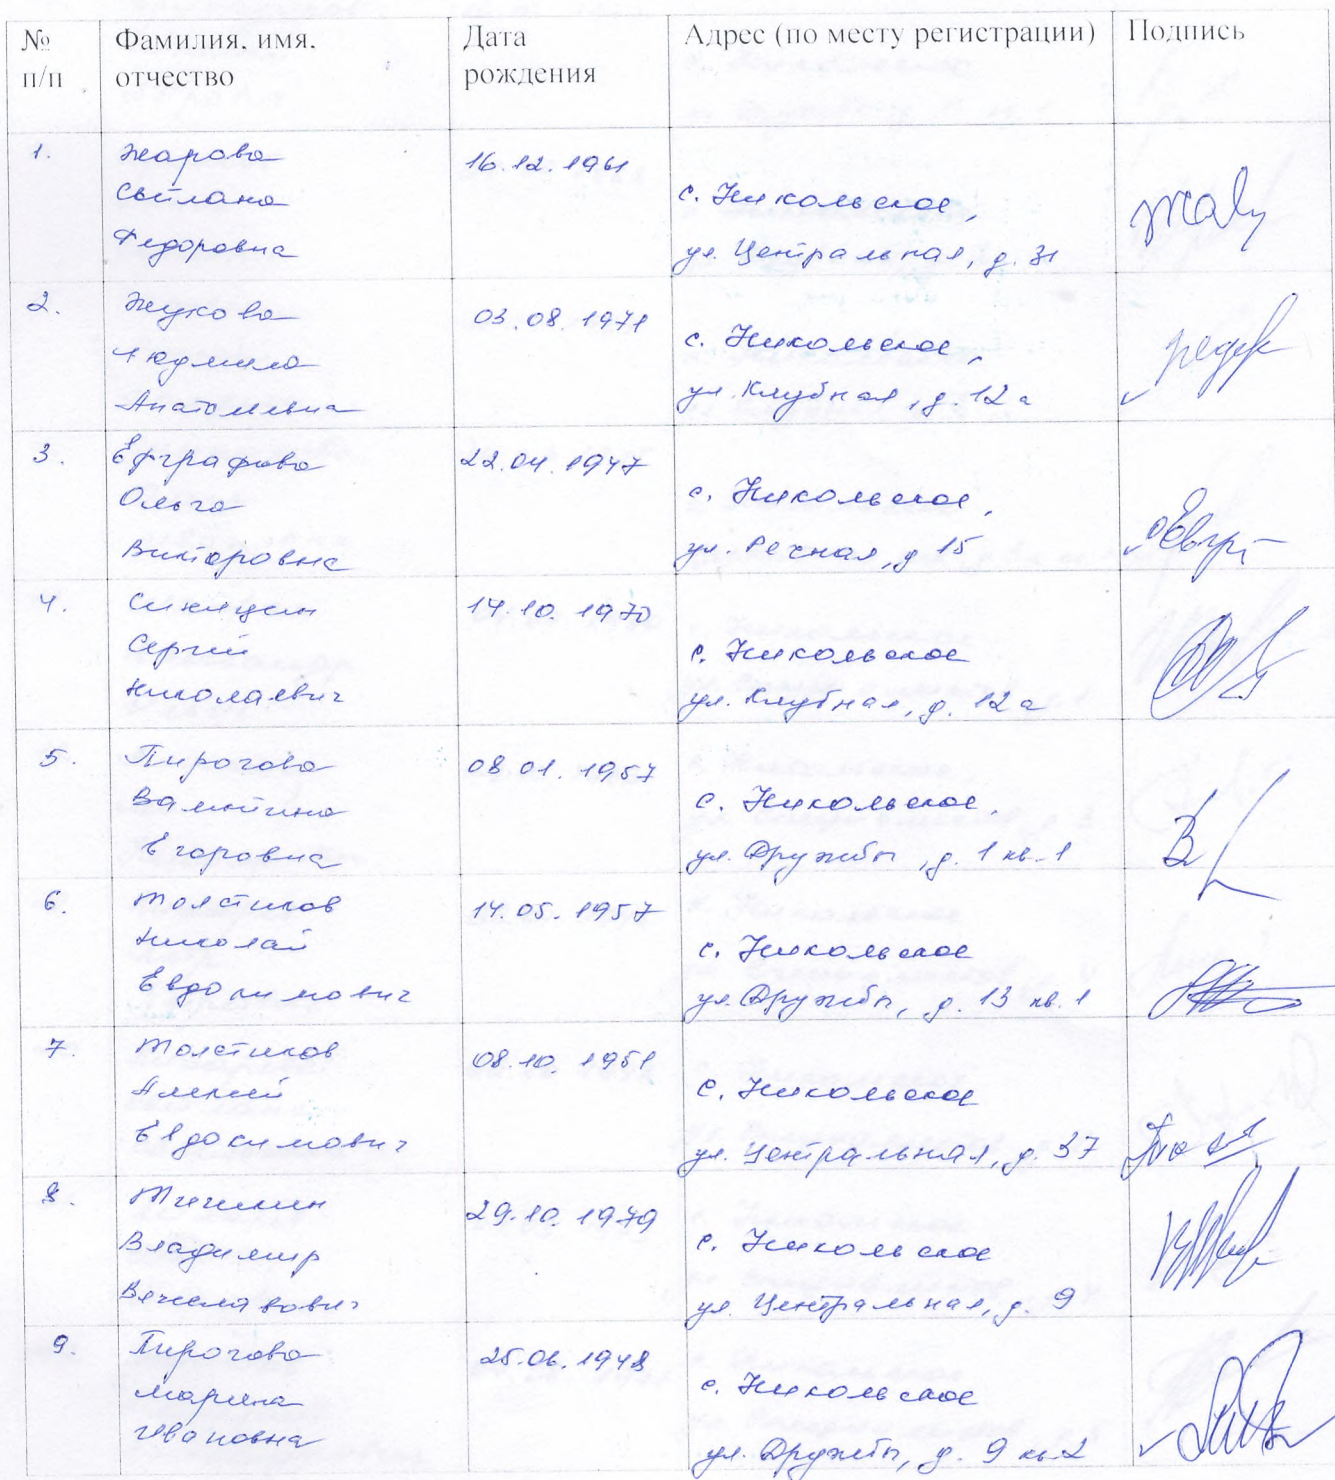 № п/п
Фамилия, имя, отчество
Дата рождения
Адрес (по месту регистрации)
Подпись
1.
Жарова
Светлана
Федоровна
16.12.1961
с. Никольское,
ул. Центральная, д. 31
2.
Жукова
Людмила
Анатольевна
03.08.1971
с. Никольское,
ул. Клубная, д. 12а
3.
Ефграфова
Ольга
Викторовна
22.04.1947
с. Никольское,
ул. Речная, д 15
4.
Сергей
Николаевич
14.10.1970
с. Никольское
ул. Клубная, д. 12а
5.
Пирогова
Валентина
Егоровна
08.01.1957
с. Никольское,
ул. Дружбы, д. 1 кв. 1
6.
Толстиков
Николай
Евдокимович
14.05.1957
с. Никольское
ул. Дружбы, д. 13 кв. 1
7.
Толстиков
Алексей
Евдокимович
08.10.1951
с. Никольское
ул. Центральная, д. 37
8.
Владимир
Вячеславович
29.10.1979
с. Никольское
ул. Центральная, д. 9
9.
Пирогова
Марина
Ивановна
25.06.1948
с. Никольское
ул. Дружбы, д. 9 кв. 2